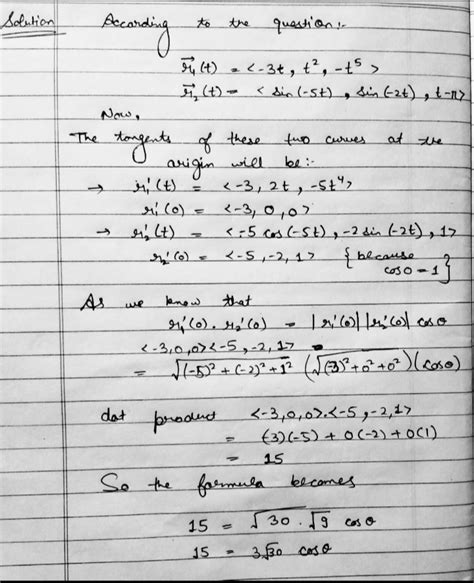 Solution According to the question:-
r₁(t) = <-3t, t², -t⁵>
r₂(t) = < sin(-5t), sin(-2t), t-π>
Now,
The tangents of these two curves at the
origin will be:-
→ r₁'(t) = <-3, 2t, -5t⁴>
r₁'(0) = <-3, 0, 0>
→ r₂'(t) = <-5 cos(-5t), -2 sin(-2t), 1>
r₂'(0) = <-5, -2, 1> { because
cos0 = 1 }
As we know that
r₁'(0) . r₂'(0) = |r₁'(0)| |r₂'(0)| cosθ
<-3,0,0><-5,-2,1> =
= √(-5)²+(-2)²+1² (√(3)²+0²+0²) (cosθ)
dot product <-3,0,0>.<-5,-2,1>
= (-3)(-5) + 0(-2) + 0(1)
= 15
So the formula becomes
15 = √30 . √9 cosθ
15 = 3√30 cosθ